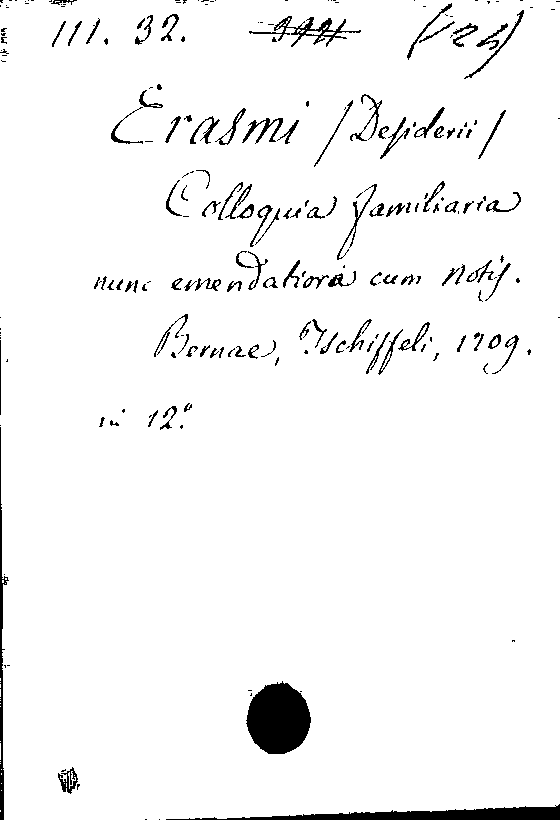 111. 32. (124)
Erasmi / Desiderii /
Colloquia familiaria
nunc emendatiora cum notis.
Bernae, Tschiffeli, 1709.
in 12.º